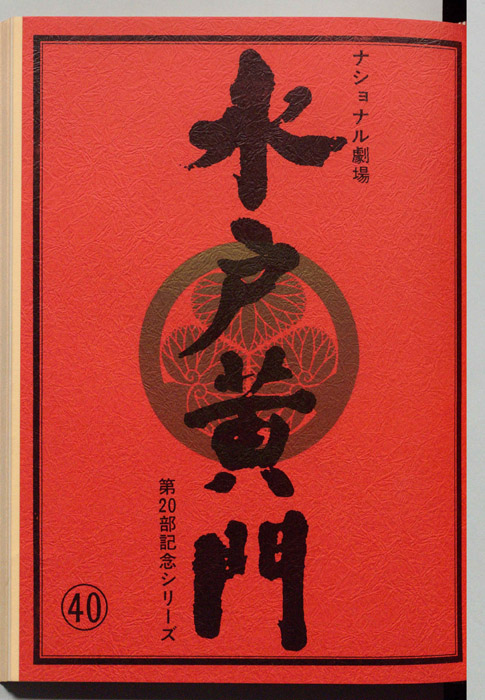 ナショナル劇場
水戸黄門
第20部記念シリーズ
40